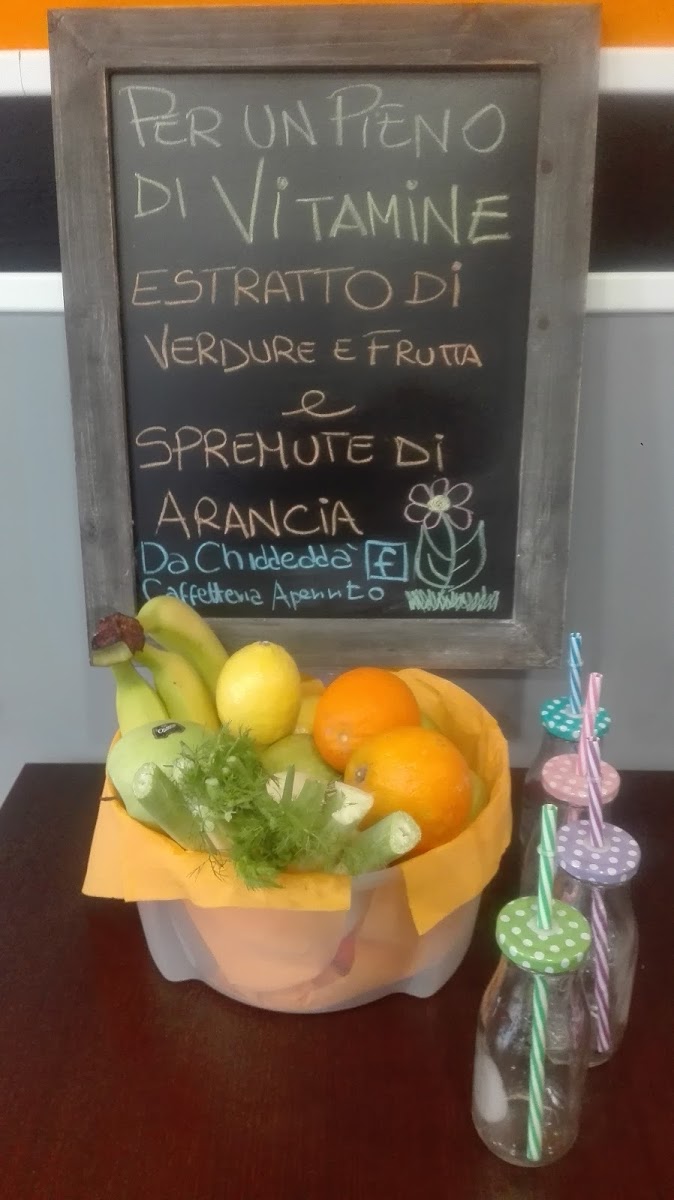 PER UN PIENO
DI VITAMINE
ESTRATTO DI
VERDURE E FRUTTA
e
SPREMUTE DI
ARANCIA
Da Chiddeddà f
Caffetteria Aperitito